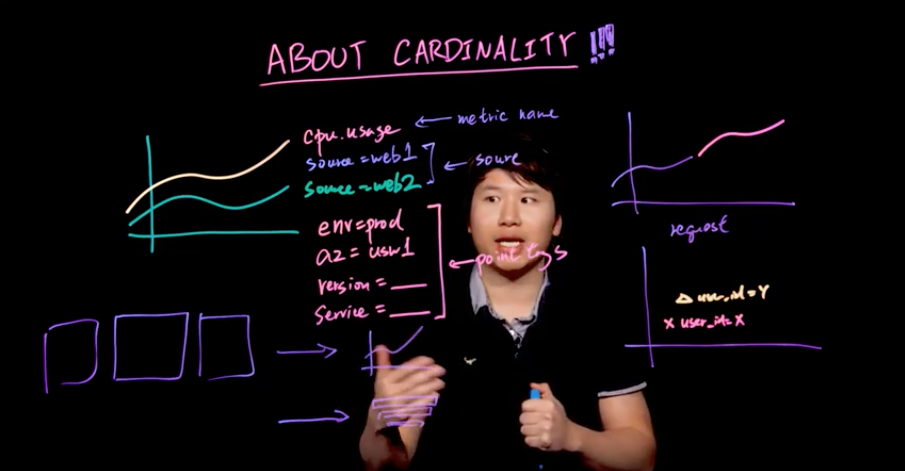 ABOUT CARDINALITY !!!
cpu.usage ← metric name
source = web1
← source
source = web2
env=prod
az = usw1
← point tags
version = ___
service = ___
request
△ user_id = Y
x user_id = X